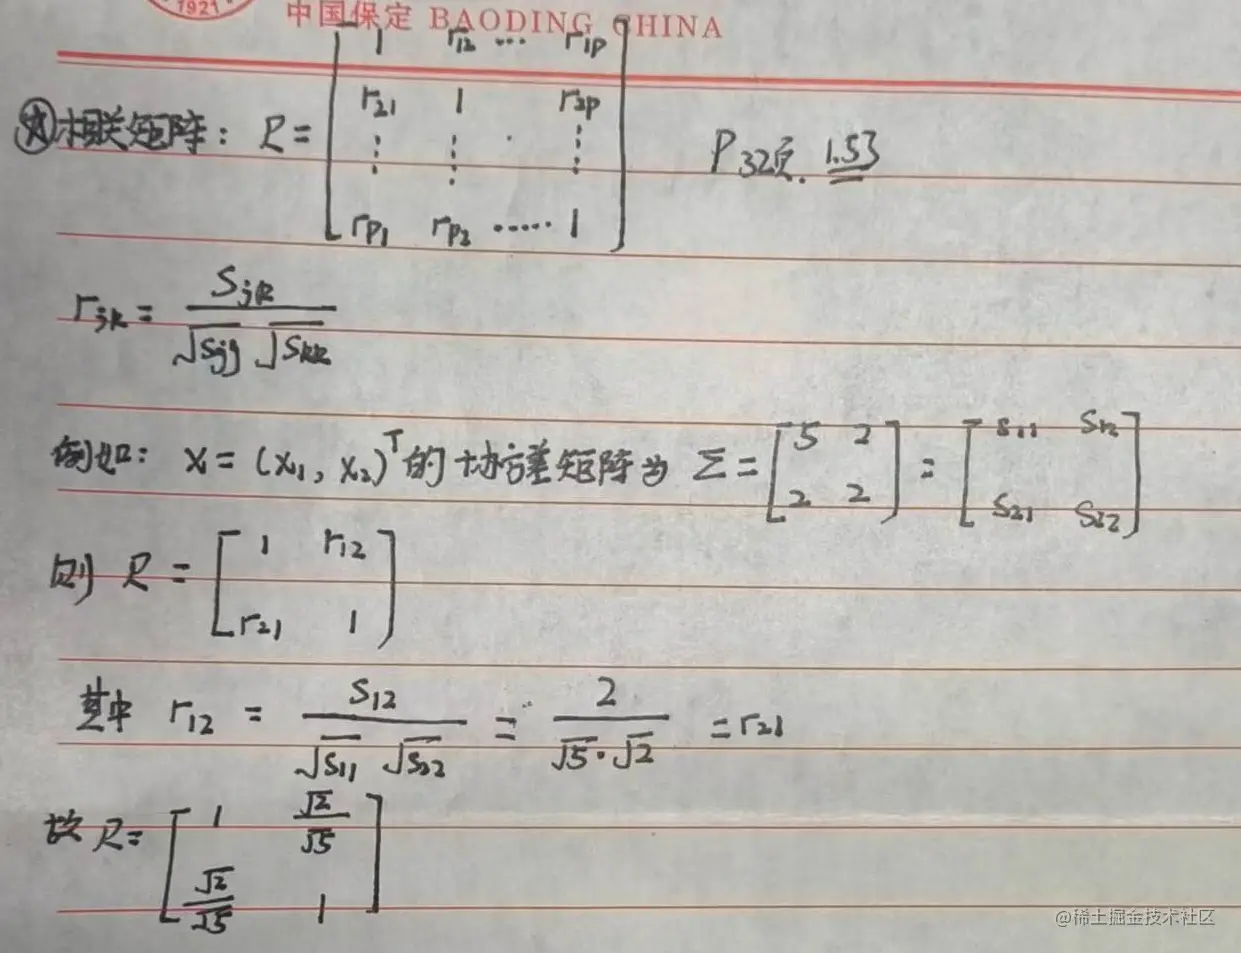 1921
中国保定 BAODING CHINA
☆相关矩阵: R = [ 1 r12 ... r1p
r21 1 r2p
⋮ ⋮ . ⋮
rp1 rp2 ...... 1 ]
P32页. 1.53
rjk = Sjk / (√Sjj √Skk)
例如: X = (x1, x2)^T 的协方差矩阵为 Σ = [ 5 2 ; 2 2 ] = [ S11 S12 ; S21 S22 ]
则 R = [ 1 r12 ; r21 1 ]
其中 r12 = S12 / (√S11 √S22) = 2 / (√5·√2) = r21
故 R = [ 1 √2/√5 ; √2/√5 1 ]
@稀土掘金技术社区